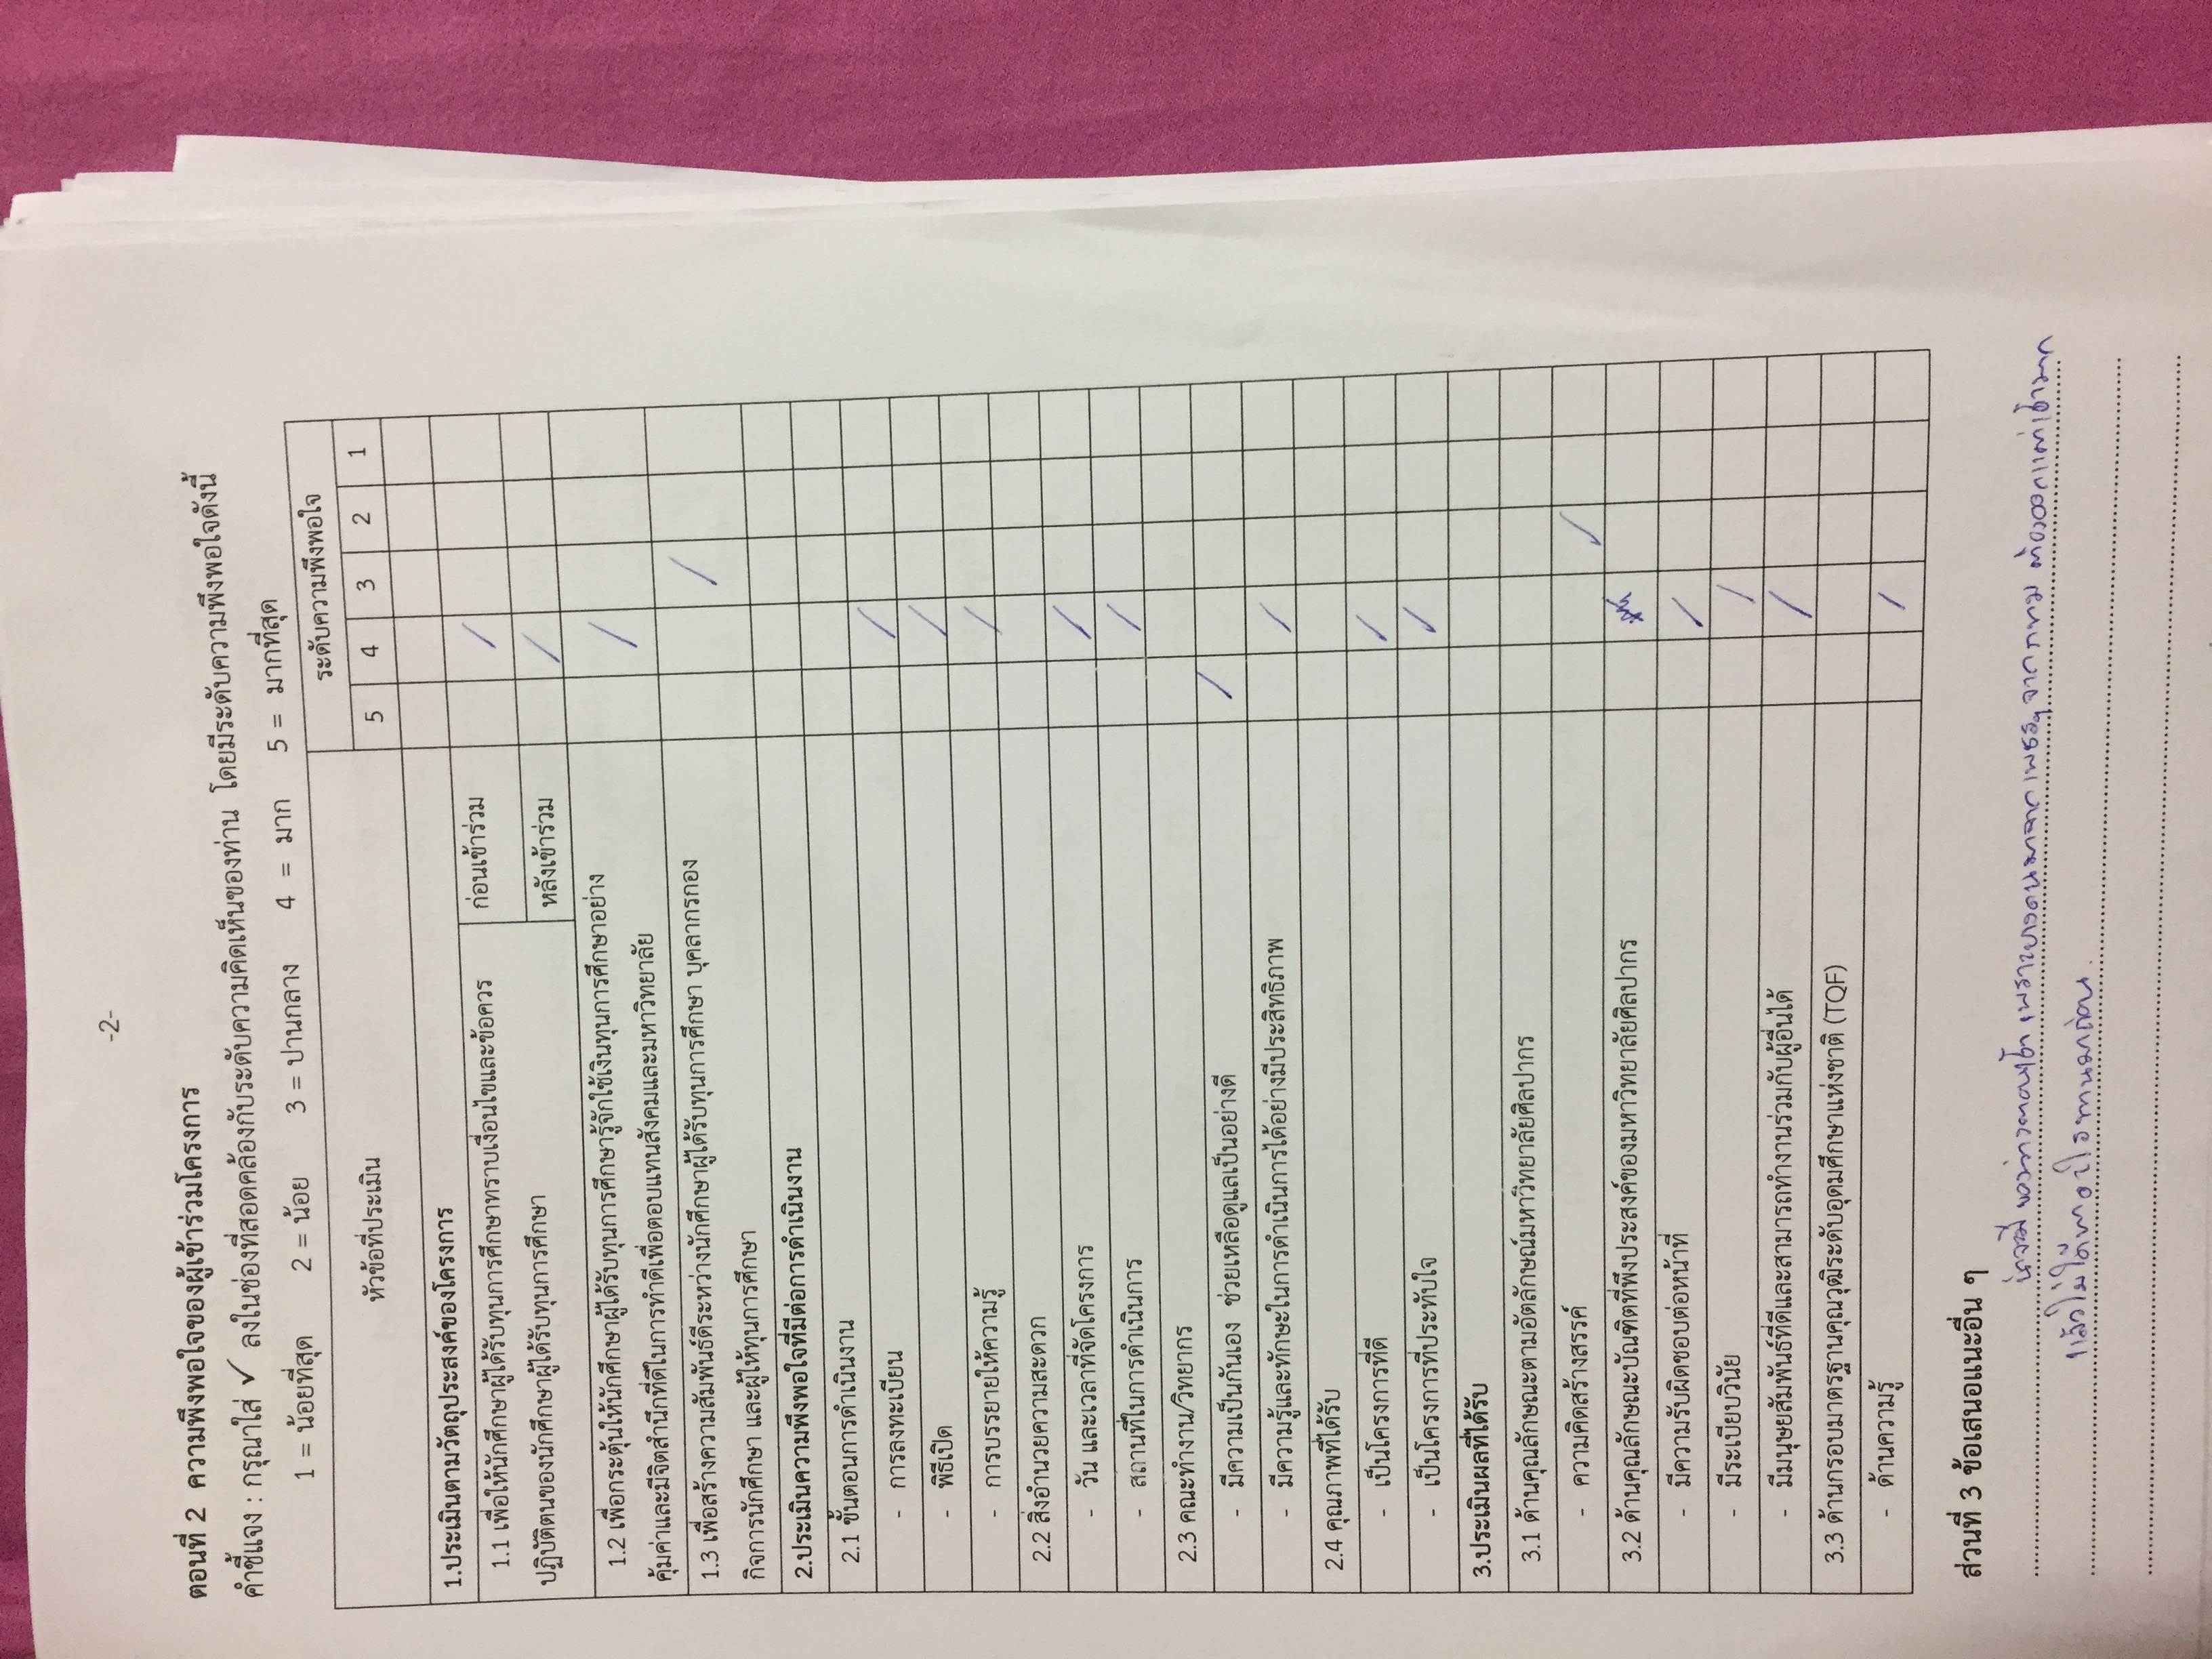 -2-
ตอนที่ 2 ความพึงพอใจของผู้เข้าร่วมโครงการ
คำชี้แจง : กรุณาใส่ ✓ ลงในช่องที่สอดคล้องกับระดับความคิดเห็นของท่าน โดยมีระดับความพึงพอใจดังนี้
1 = น้อยที่สุด 2 = น้อย 3 = ปานกลาง 4 = มาก 5 = มากที่สุด
ระดับความพึงพอใจ
หัวข้อที่ประเมิน
5 4 3 2 1
1.ประเมินตามวัตถุประสงค์ของโครงการ
1.1 เพื่อให้นักศึกษาผู้ได้รับทุนการศึกษาทราบเงื่อนไขและข้อควร
ปฏิบัติตนของนักศึกษาผู้ได้รับทุนการศึกษา
ก่อนเข้าร่วม /
หลังเข้าร่วม /
1.2 เพื่อกระตุ้นให้นักศึกษาผู้ได้รับทุนการศึกษารู้จักใช้เงินทุนการศึกษาอย่าง /
คุ้มค่าและมีจิตสำนึกที่ดีในการทำดีเพื่อตอบแทนสังคมและมหาวิทยาลัย
1.3 เพื่อสร้างความสัมพันธ์ดีระหว่างนักศึกษาผู้ได้รับทุนการศึกษา บุคลากรกอง /
กิจการนักศึกษา และผู้ให้ทุนการศึกษา
2.ประเมินความพึงพอใจที่มีต่อการดำเนินงาน
2.1 ขั้นตอนการดำเนินงาน
- การลงทะเบียน /
- พิธีเปิด /
- การบรรยายให้ความรู้ /
2.2 สิ่งอำนวยความสะดวก
- วัน และเวลาที่จัดโครงการ /
- สถานที่ในการดำเนินการ /
2.3 คณะทำงาน/วิทยากร
- มีความเป็นกันเอง ช่วยเหลือดูแลเป็นอย่างดี /
- มีความรู้และทักษะในการดำเนินการได้อย่างมีประสิทธิภาพ /
2.4 คุณภาพที่ได้รับ
- เป็นโครงการที่ดี ✓
- เป็นโครงการที่ประทับใจ ✓
3.ประเมินผลที่ได้รับ
3.1 ด้านคุณลักษณะตามอัตลักษณ์มหาวิทยาลัยศิลปากร
- ความคิดสร้างสรรค์ ✓
3.2 ด้านคุณลักษณะบัณฑิตที่พึงประสงค์ของมหาวิทยาลัยศิลปากร
- มีความรับผิดชอบต่อหน้าที่ ✓
- มีระเบียบวินัย /
- มีมนุษยสัมพันธ์ที่ดีและสามารถทำงานร่วมกับผู้อื่นได้ /
3.3 ด้านกรอบมาตรฐานคุณวุฒิระดับอุดมศึกษาแห่งชาติ (TQF)
- ด้านความรู้ /
ส่วนที่ 3 ข้อเสนอแนะอื่น ๆ
น่าจะมี ของว่างตอนเช้า เพราะบางคนมาจาก เพชรฯ จาก กทม ต้องออกแต่เช้ามาก
แล้วไม่ได้หาอะไรทานมาก่อน.